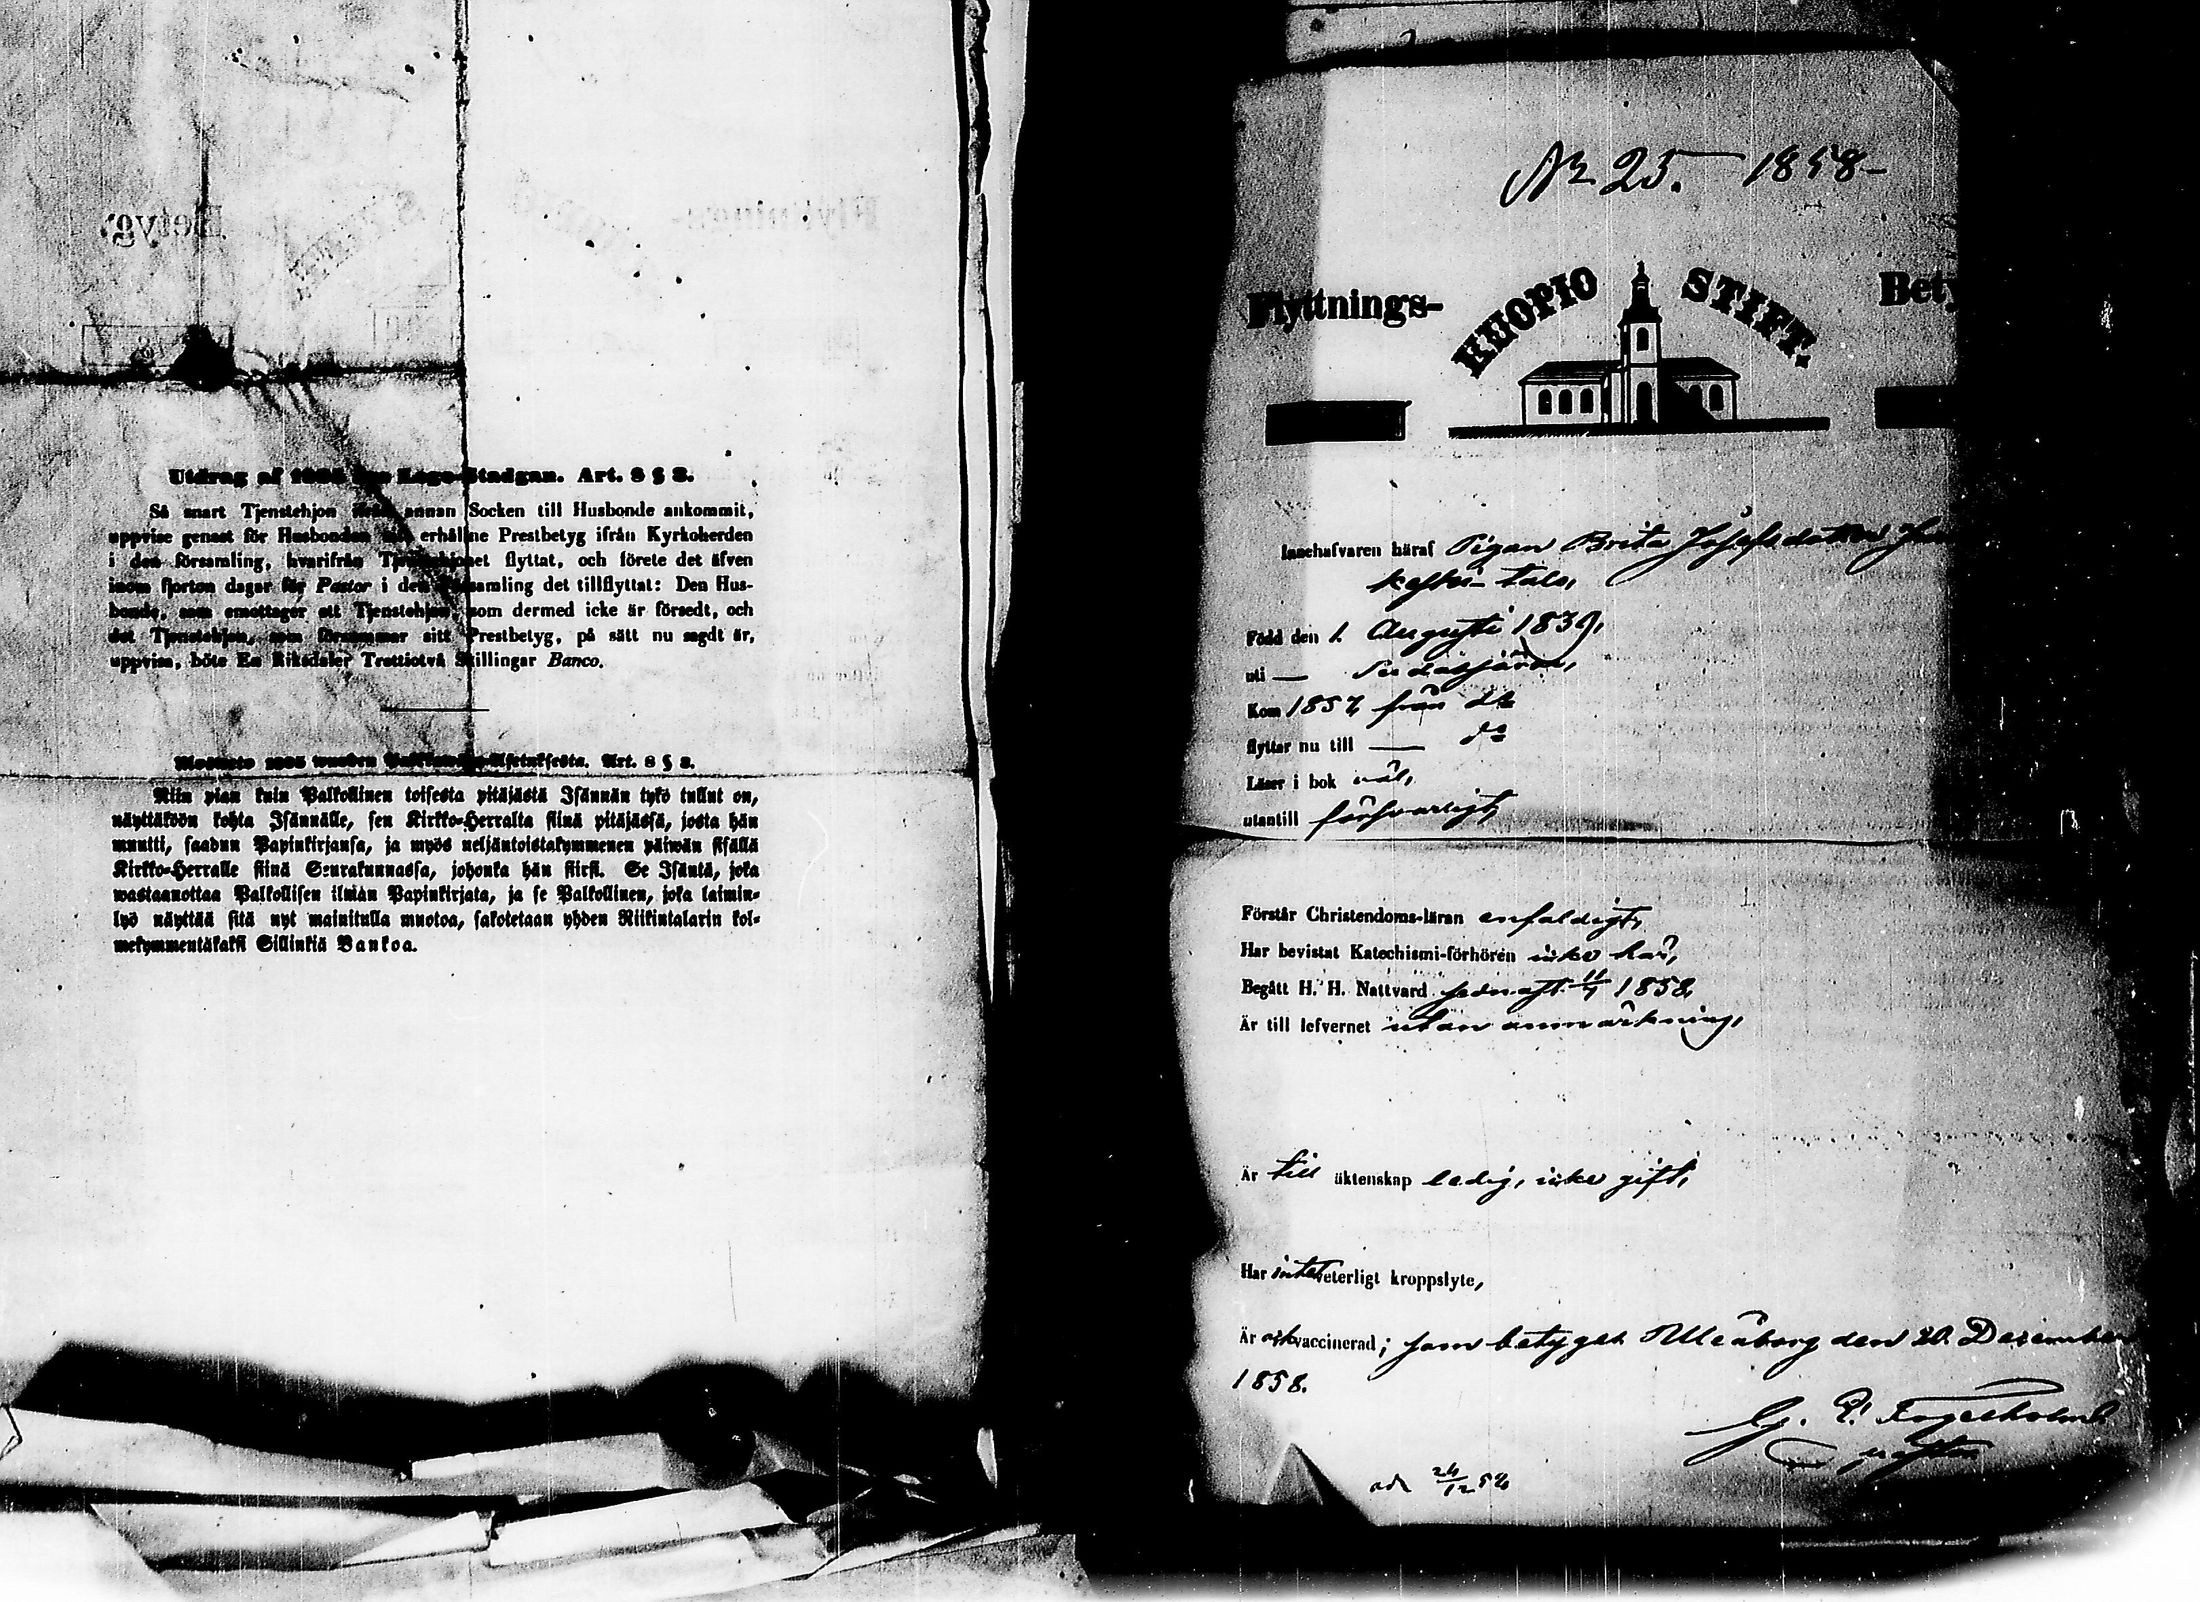 Utdrag af 1805 års Lego-Stadgan. Art. 8 § 8.
Så snart Tjenstehjon ifrån annan Socken till Husbonde ankommit,
uppvise genast för Husbonden sitt erhållne Prestbetyg ifrån Kyrkoherden
i den församling, hvarifrån Tjenstehjonet flyttat, och förete det äfven
inom fjorton dagar för Pastor i den församling det tillflyttat: Den Hus-
bonde, som emottager ett Tjenstehjon, som dermed icke är försedt, och
det Tjenstehjon, som försummar sitt Prestbetyg, på sätt nu sagdt är,
uppvisa, böte En Riksdaler Trettiotvå Skillingar Banco.
1805 wuoden Art. 8 § 8.
Niin pian kuin Palkollinen toisesta pitäjästä Isännän tykö tullut on,
näyttäköön kohta Isännälle, sen Kirkko-Herralta siinä pitäjässä, josta hän
muutti, saadun Papinkirjansa, ja myös neljäntoistakymmenen päiwän sisällä
Kirkko-Herralle siinä Seurakunnassa, johonka hän siirsi. Se Isäntä, joka
wastaanottaa Palkollisen ilman Papinkirjata, ja se Palkollinen, joka laimin-
lyö näyttää sitä nyt mainitulla muotoa, sakotetaan yhden Riikintalarin kol-
mekymmentäkaksi Sillinkiä Bankoa.
№ 25. 1858
Flyttnings- KUOPIO STIFT. Bety
Innehafvaren häraf Pigan Brita Josefsdotter
Född den 1. Augusti 1839,
uti — Pudasjärvi,
Kom 1857, från do
flyttar nu till — do
Läser i bok väl,
utantill försvarligt,
Förstår Christendoms-läran enfaldigt,
Har bevistat Katechismi-förhören icke här,
Begått H. H. Nattvard sednast 11/7 1858,
Är till lefvernet utan anmärkning,
Är till äktenskap ledig, icke gift,
Har intet veterligt kroppslyte,
Är ock vaccinerad; som betygar Uleåborg den 20 December
1858.
G. E.
24/12 58